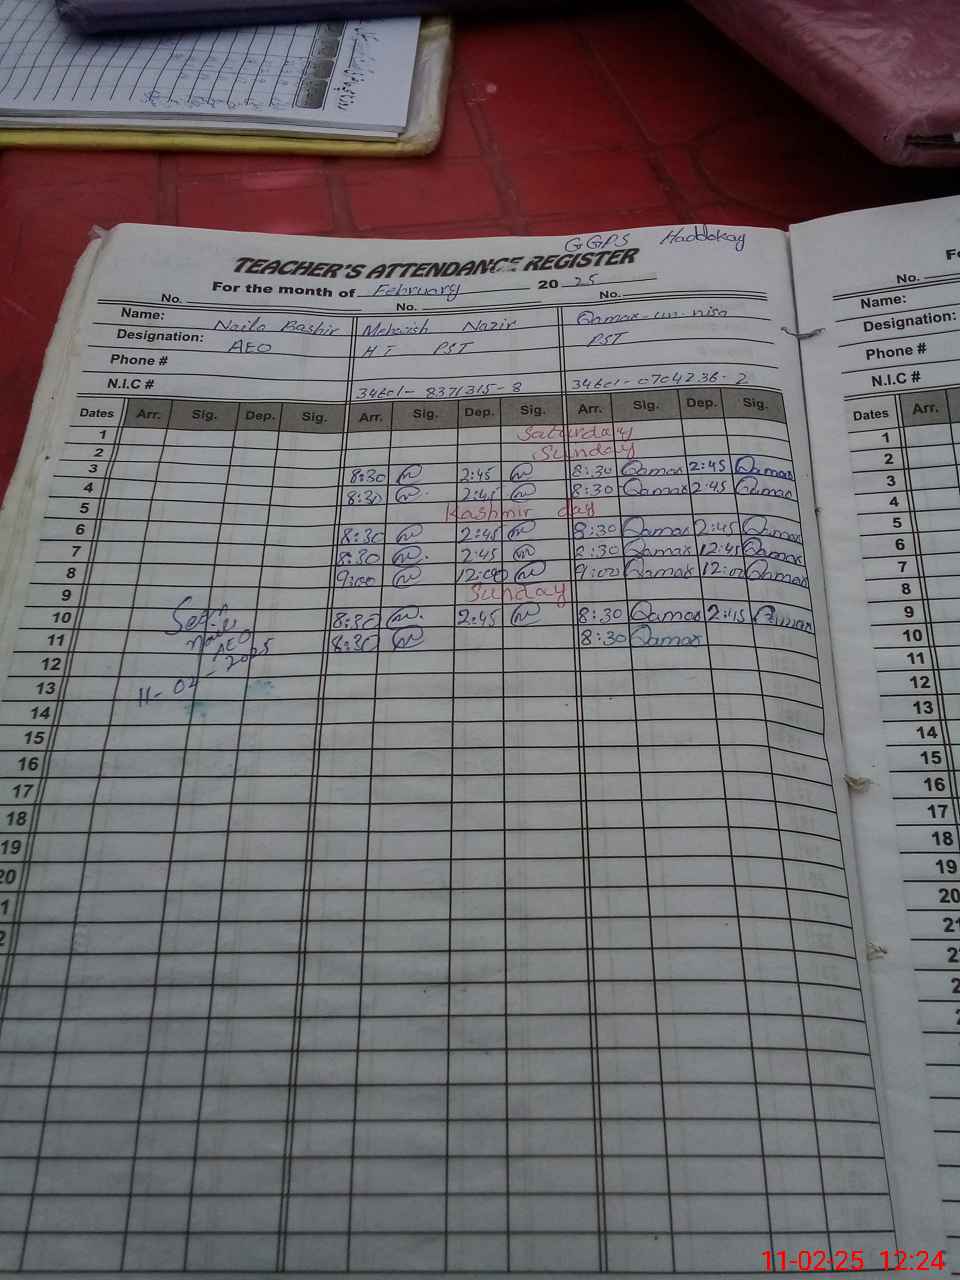 GGPS Haddokay
TEACHER'S ATTENDANCE REGISTER
For the month of February 20 25
No. No. No.
Name: Naila Bashir Mehwish Nazir Qamar-un-nisa
Designation: AEO HT PST PST
Phone #
N.I.C # 34601-8371315-8 34601-0704236-2
Dates Arr. Sig. Dep. Sig. Arr. Sig. Dep. Sig. Arr. Sig. Dep. Sig.
1 Saturday
2 Sunday
3 8:30 2:45 8:30 Qamar 2:45 Qamar
4 8:30 2:45 8:30 Qamar 2:45 Qamar
5 Kashmir day
6 8:30 2:45 8:30 Qamar 2:45 Qamar
7 8:30 2:45 8:30 Qamar 12:45 Qamar
8 9:00 12:00 9:00 Qamar 12:00 Qamar
9 Sunday
10 8:30 2:45 8:30 Qamar 2:45 Qamar
11 8:30 8:30 Qamar
AEO
11-02-2025
12
13
14
15
16
17
18
19
20
1
2
No.
Name:
Designation:
Phone #
N.I.C #
Dates Arr.
1
2
3
4
5
6
7
8
9
10
11
12
13
14
15
16
17
18
19
20
21
11-02-25 12:24